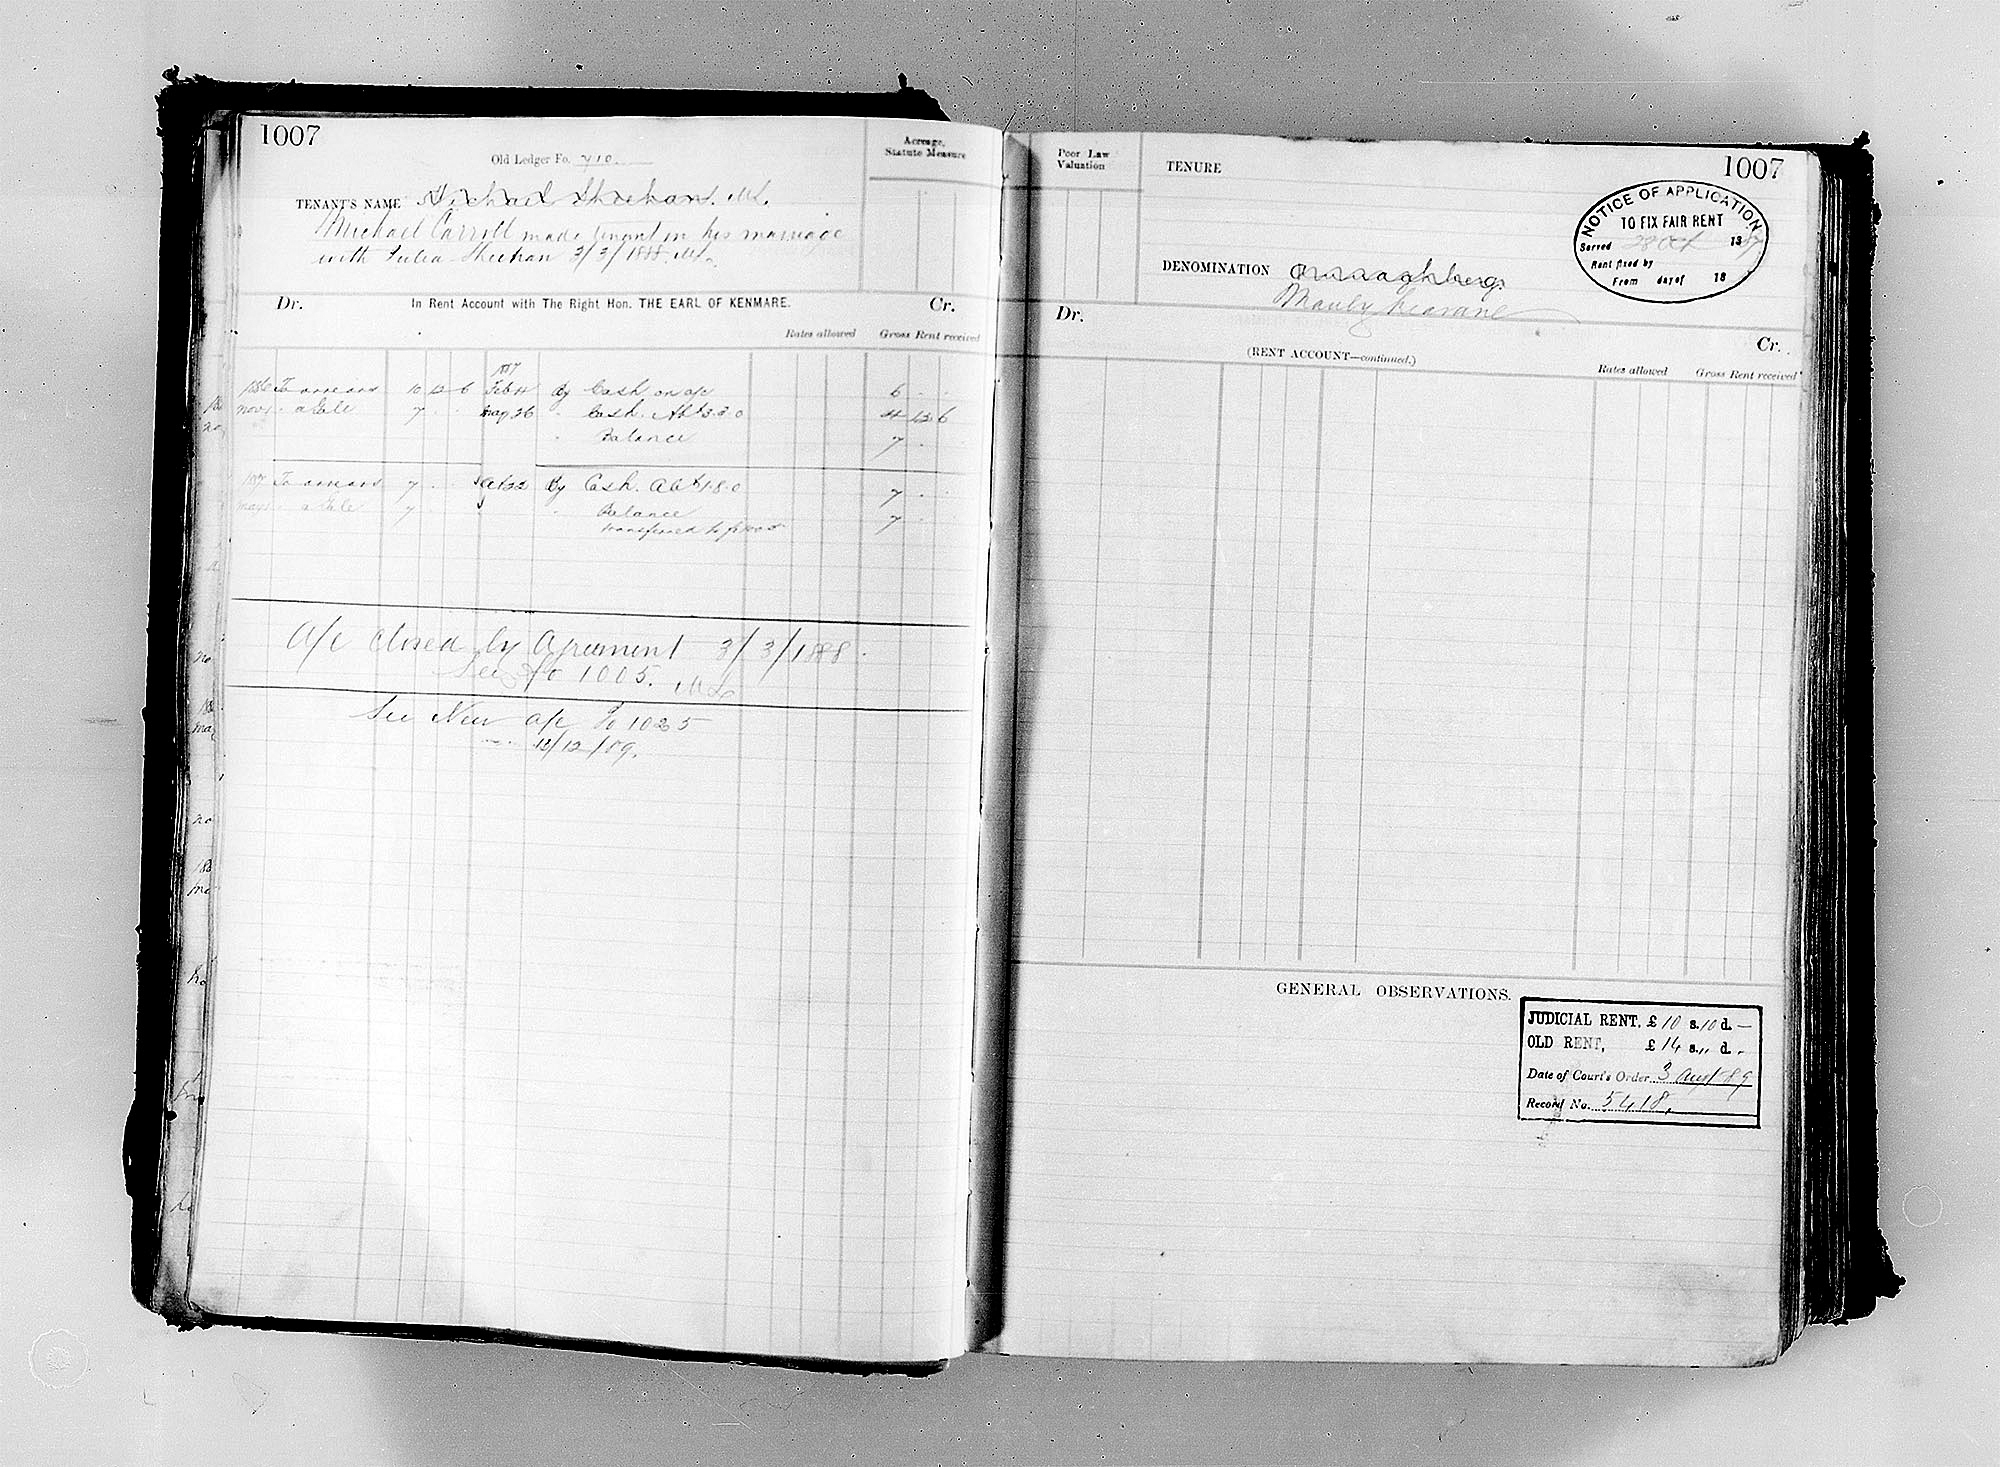 1007
Old Ledger Fo. 710
Acreage,
Statute Measure
TENANT'S NAME Michael Sheehan. ML.
Michael Carroll made tenant on his marriage
with Julia Sheehan 3/3/1888. ML.
Dr. In Rent Account with The Right Hon. THE EARL OF KENMARE. Cr.
Rates allowed Gross Rent received
1887
1886 To arrears 10 12 6 Feb 4 By Cash on a/c 6 . .
Nov 1 " a Gale 7 . . May 26 " Cash. Abt 2.2.0 4 12 6
" Balance 7 . .
1887 To arrears 7 . . Oct 22 By Cash. Abt 1.8.0 7 . .
May 1 " a Gale 7 . . " Balance 7 . .
transferred to fo 1005
a/c closed by Agreement 3/3/1888.
See fo 1005. ML
See New a/c fo 1025
12/12/09.
Poor Law
Valuation
TENURE
1007
NOTICE OF APPLICATION
TO FIX FAIR RENT
Served 28 Oct 1887
Rent fixed by
From day of 18
DENOMINATION
Dr.
Cr.
(RENT ACCOUNT—continued.)
Rates allowed Gross Rent received
GENERAL OBSERVATIONS.
JUDICIAL RENT, £ 10 s. 10 d. —
OLD RENT, £ 14 s. " d. "
Date of Court's Order 3 Aug 89
Record No. 5418.